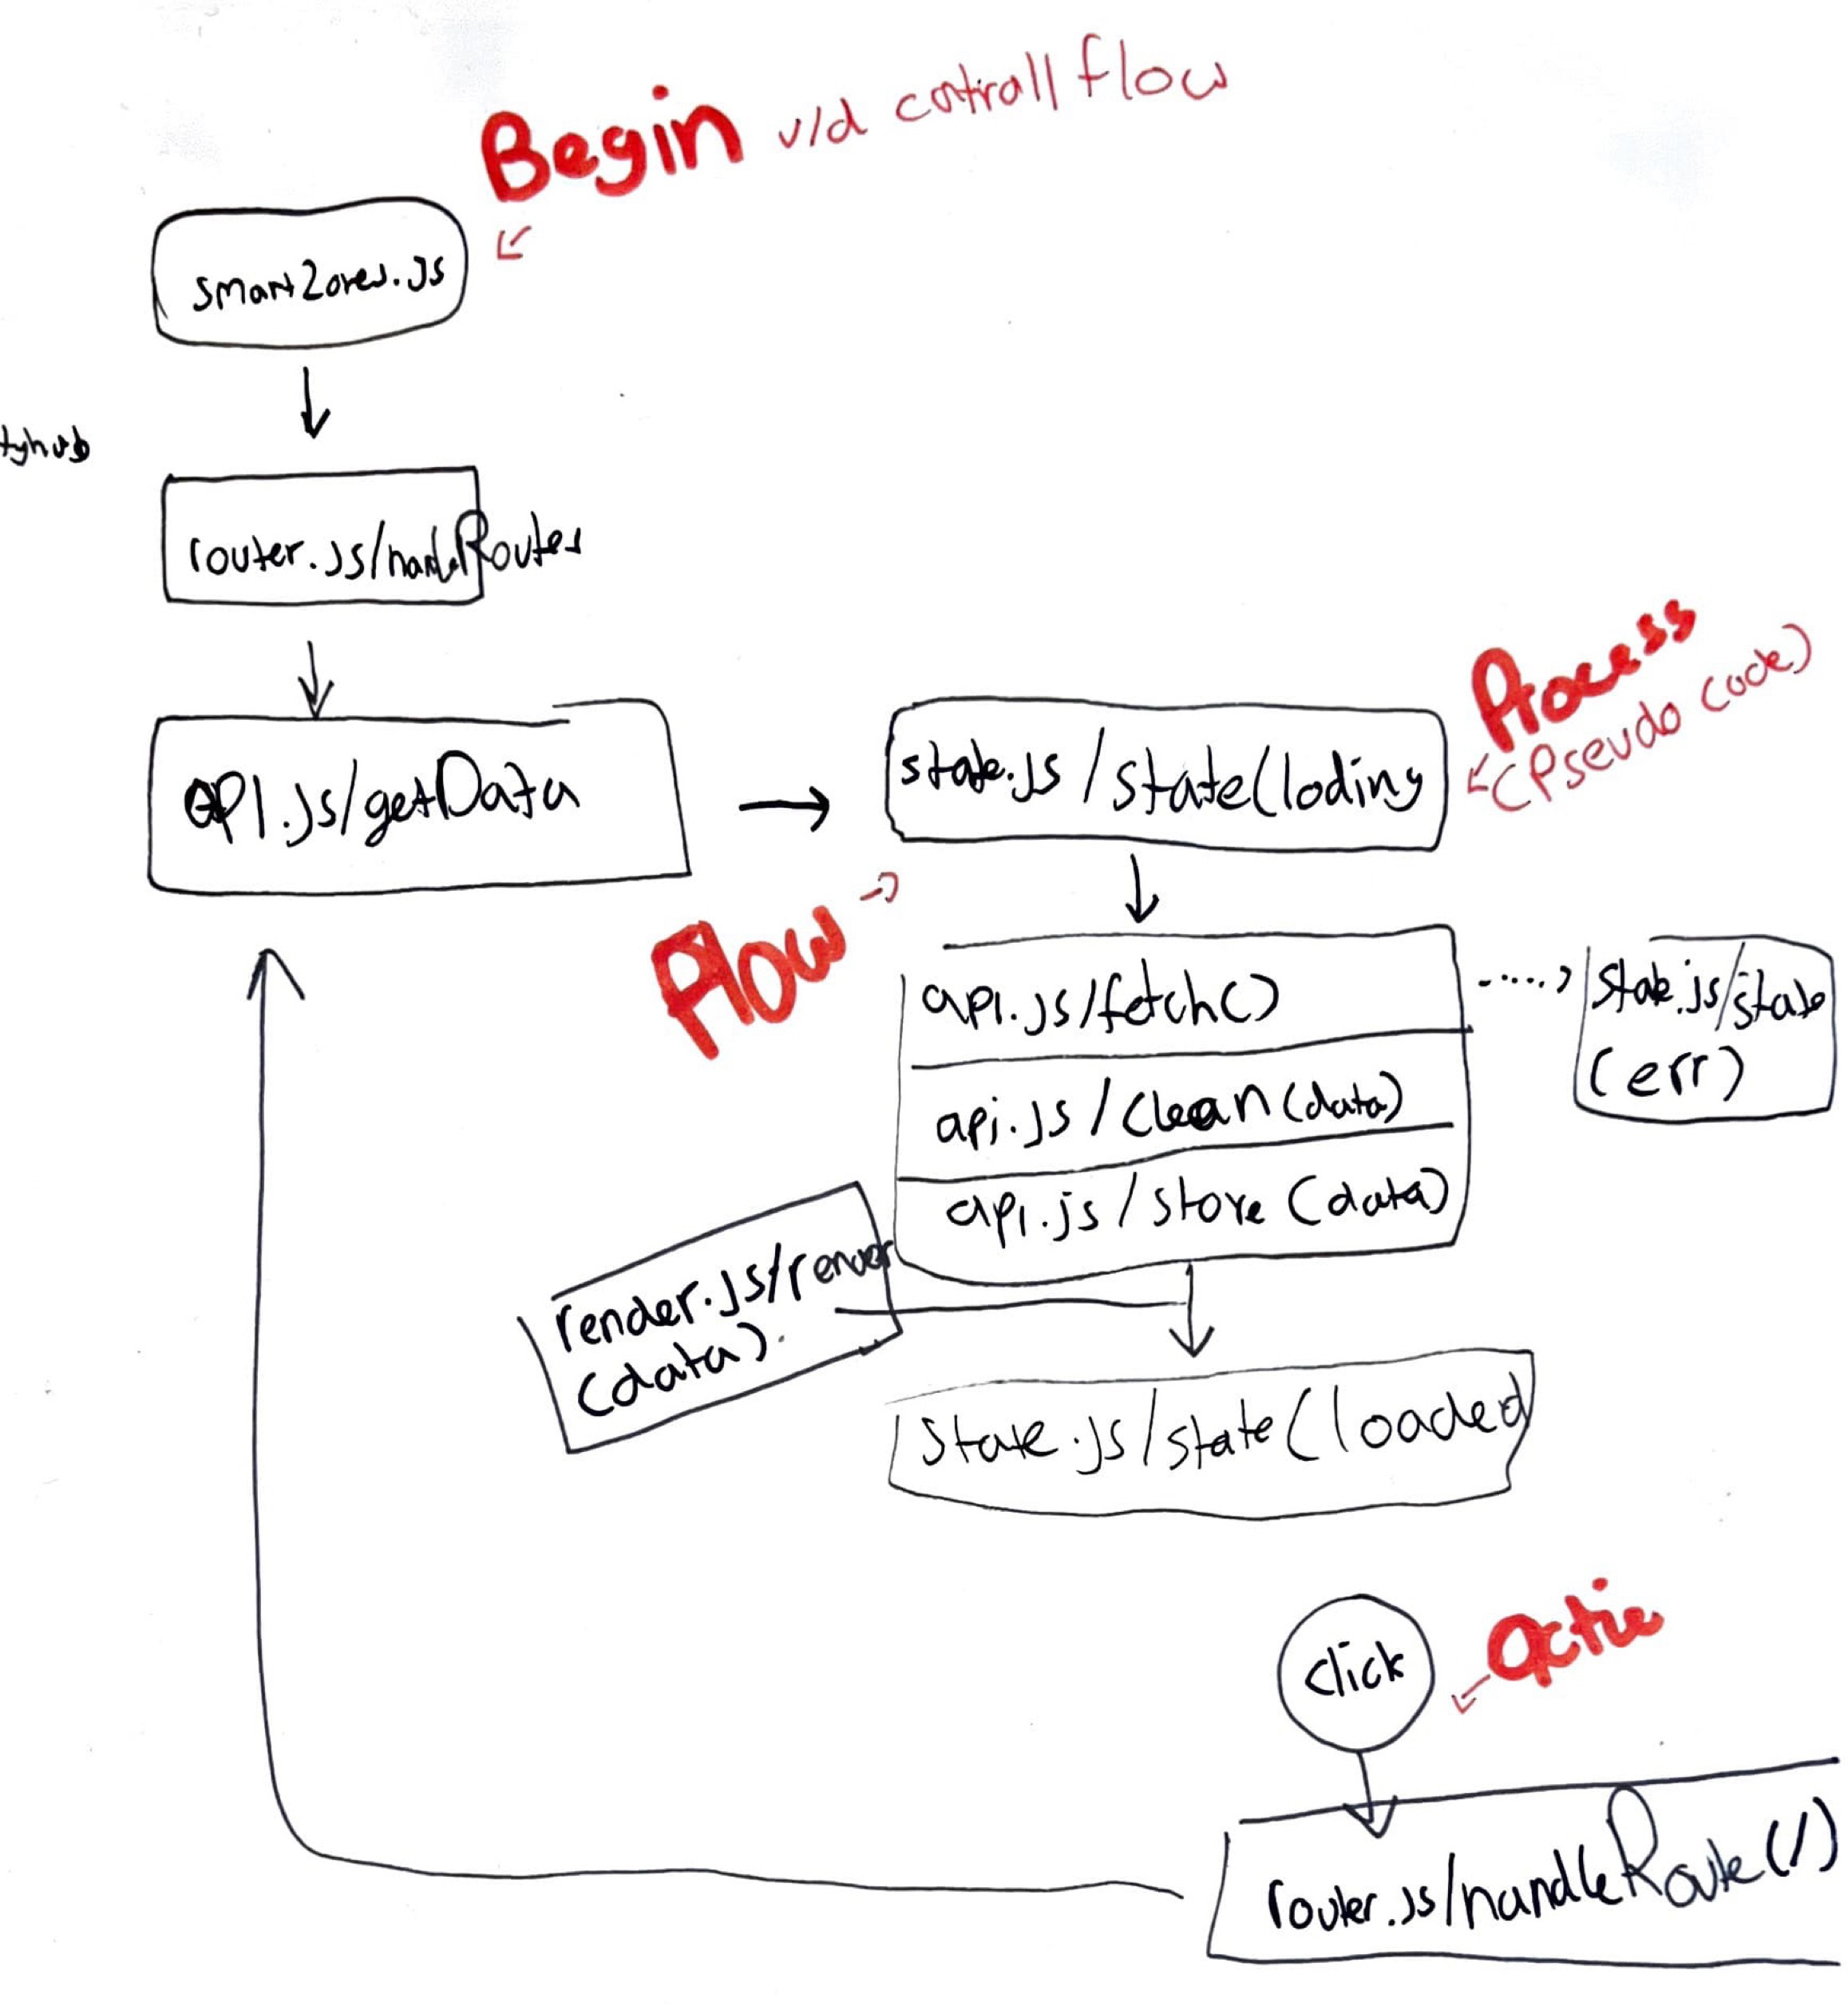 Begin v/d controll flow
smartZones.js
tyhub
router.js/handleRoutes
API.js/getData
state.js/state(loding
Process
(Pseudo code)
Flow
api.js/fetch()
state.js/state
(err)
api.js/clean(data)
api.js/store(data)
render.js/render
(data)
state.js/state(loaded
click
actie
router.js/handleRoute(/)